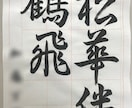 松華伴
鶴飛